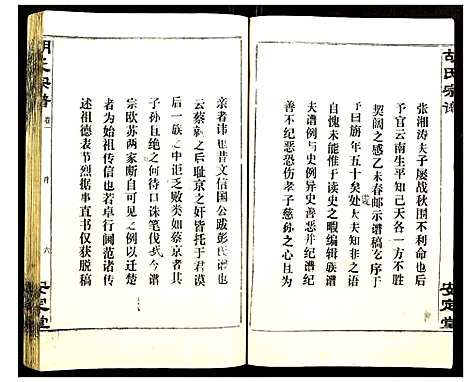 胡氏宗譜
安定堂
张湘涛夫子屡战秋闱不利命也后
予官云南生平知己天各一方不胜
契阔之感乙未春邮示谱稿乞序于
予曰旃年五十矣处大夫知非之语
自愧未能惟于读史之暇编辑族谱
夫谱例与史例异史善恶并纪谱纪
善不纪恶恐伤孝子慈孙之心且为
亲者讳也昔文信国公跋彭氏谱也
云蔡莽之后耻京之奸皆托于君漠
后一族之中讵乏败类如蔡京者其
子孙且绝之何待口诛笔伐哉今谱
宗欧苏两家断自可见之例以迁楚
者为始祖传信也若卓行阃范诸传
述祖德表节烈据事直书仅获脱稿
胡氏宗普
卷一
六
安定堂